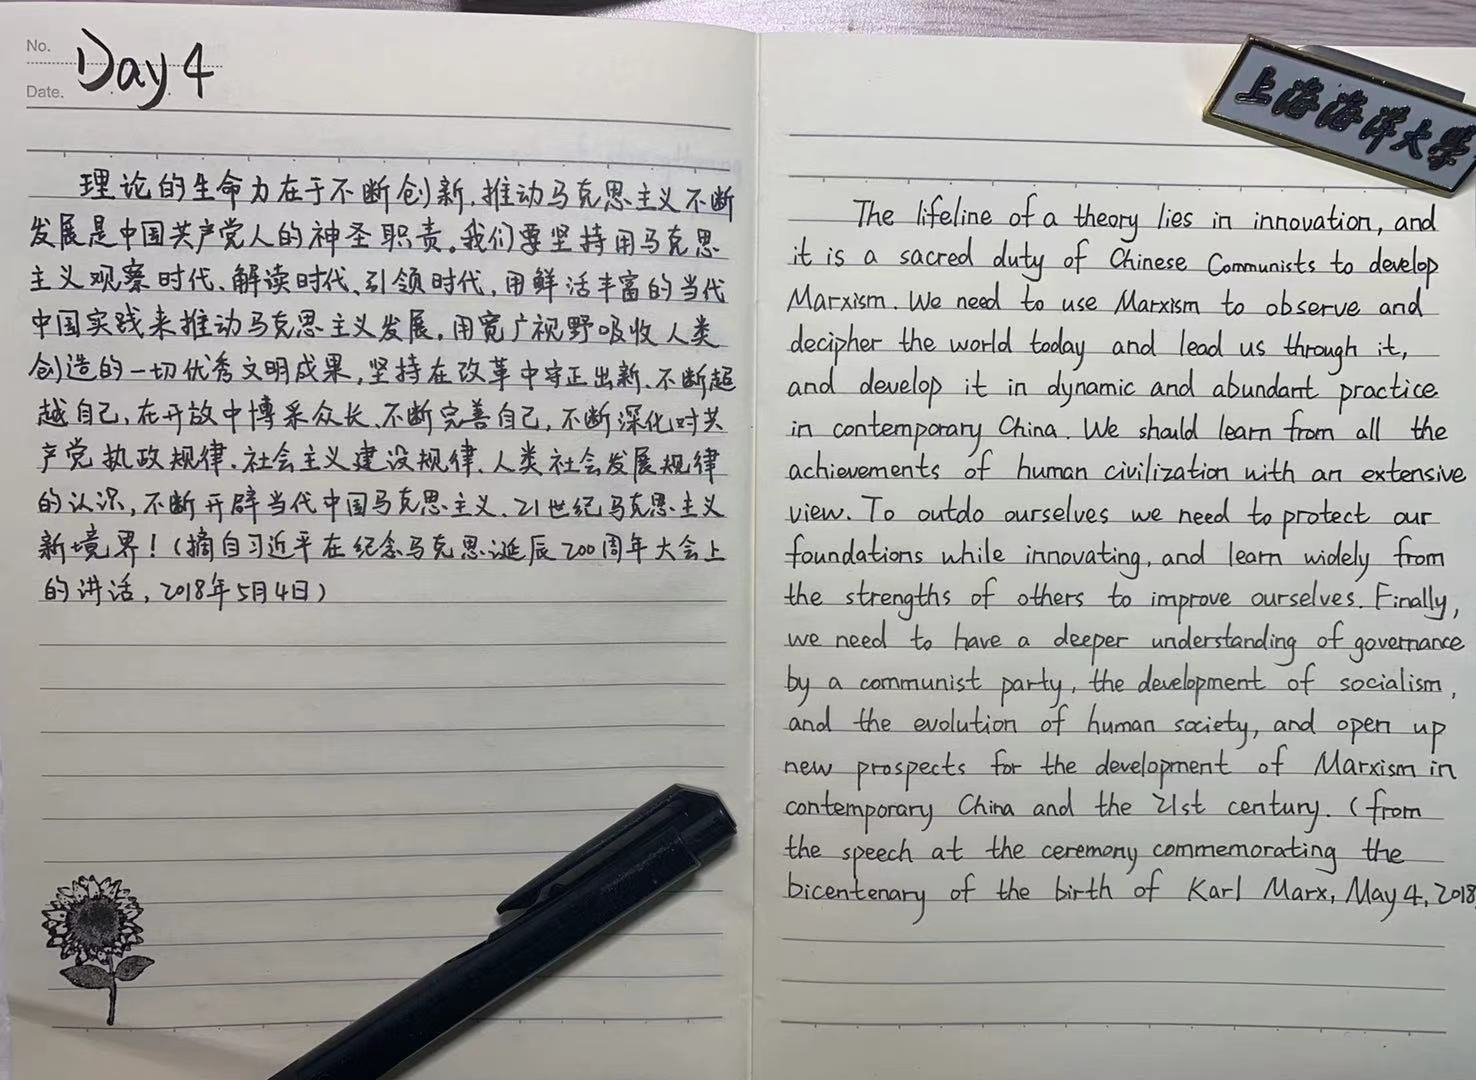 No.
Day 4
Date.
理论的生命力在于不断创新,推动马克思主义不断
发展是中国共产党人的神圣职责。我们要坚持用马克思
主义观察时代、解读时代、引领时代,用鲜活丰富的当代
中国实践来推动马克思主义发展,用宽广视野吸收人类
创造的一切优秀文明成果,坚持在改革中守正出新、不断超
越自己,在开放中博采众长、不断完善自己,不断深化对共
产党执政规律、社会主义建设规律、人类社会发展规律
的认识,不断开辟当代中国马克思主义、21世纪马克思主义
新境界!(摘自习近平在纪念马克思诞辰200周年大会上
的讲话,2018年5月4日)
上海海洋大學
The lifeline of a theory lies in innovation, and
it is a sacred duty of Chinese Communists to develop
Marxism. We need to use Marxism to observe and
decipher the world today and lead us through it,
and develop it in dynamic and abundant practice
in contemporary China. We should learn from all the
achievements of human civilization with an extensive
view. To outdo ourselves we need to protect our
foundations while innovating, and learn widely from
the strengths of others to improve ourselves. Finally,
we need to have a deeper understanding of governance
by a communist party, the development of socialism,
and the evolution of human society, and open up
new prospects for the development of Marxism in
contemporary China and the 21st century. (from
the speech at the ceremony commemorating the
bicentenary of the birth of Karl Marx, May 4, 2018